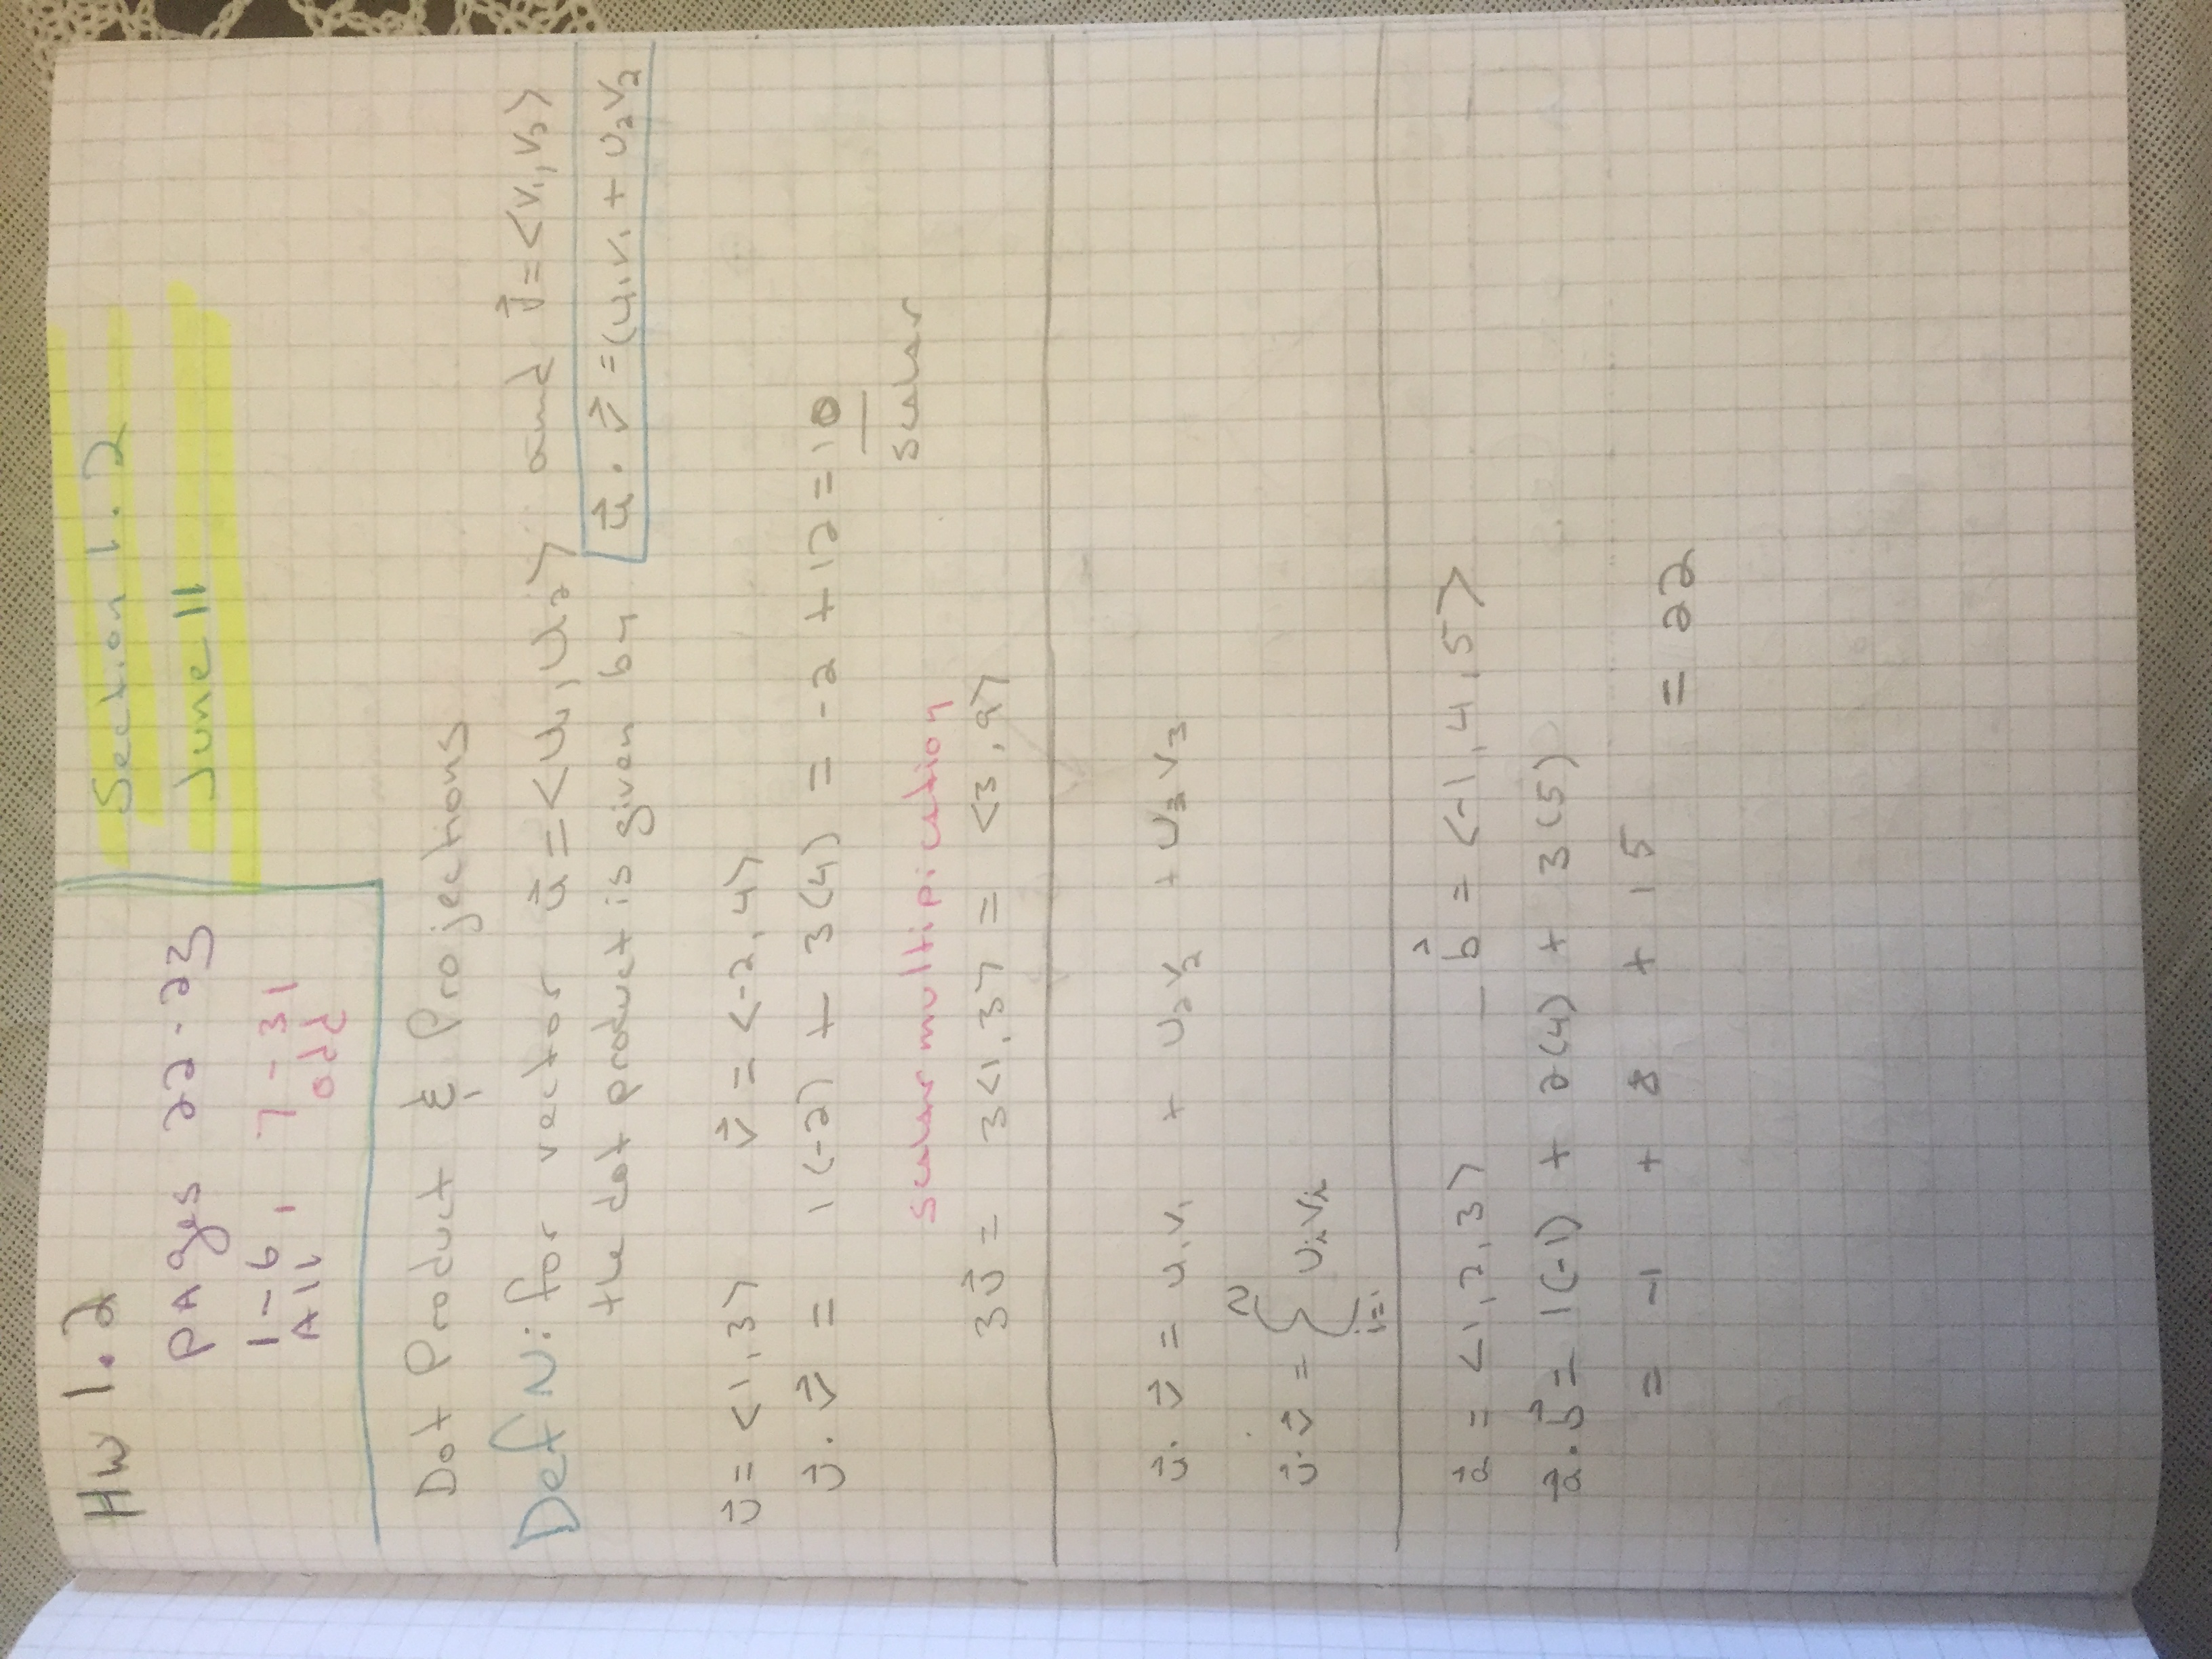 Hw 1.2
pages 22-23
1-6, 7-31
All odd
Section 1.2
June 11
Dot Product & Projections
Def N: for vector u⃗ = <u₁, u₂> and v⃗ = <v₁, v₂>
the dot product is given by u⃗ · v⃗ = (u₁v₁ + u₂v₂
u⃗ = <1, 3> v⃗ = <-2, 4>
u⃗ · v⃗ = 1(-2) + 3(4) = -2 + 12 = 10
scalar
scalar multipication
3u⃗ = 3<1, 3> = <3, 9>
u⃗ · v⃗ = u₁v₁ + u₂v₂ + u₃v₃
n
u⃗ · v⃗ = Σ uᵢvᵢ
i=1
a⃗ = <1, 2, 3> b⃗ = <-1, 4, 5>
a⃗ · b⃗ = 1(-1) + 2(4) + 3(5)
= -1 + 8 + 15
= 22